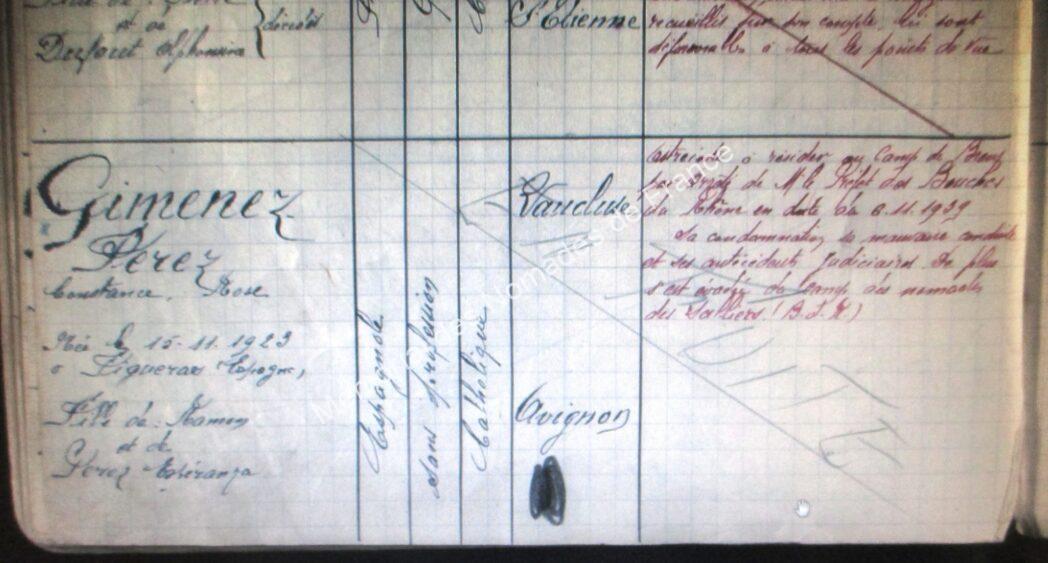 et de
Dufour Alphonsine
décédés
St Etienne
recueillis sur son compte lui sont
défavorables à tous les points de vue
GIMENEZ
Perez
Constance, Rose
Née le 15-11-1923
à Figueras (Espagne)
Fille de Ramon
et de
Perez Espéranza
Espagnole
Sans profession
Catholique
Vaucluse
Avignon
astreinte à résider au Camp de
par arrêté de M. le Préfet des Bouches
du Rhône en date du 6.11.1939
Sa condamnation sa mauvaise conduite
et ses antécédents judiciaires. De plus
s'est évadée du Camp des nomades
des Salliers. (B.d.R)
Nomades de France